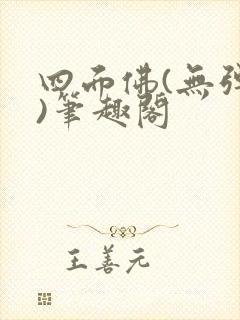 四面佛(無彈
)筆趣閣
王善元